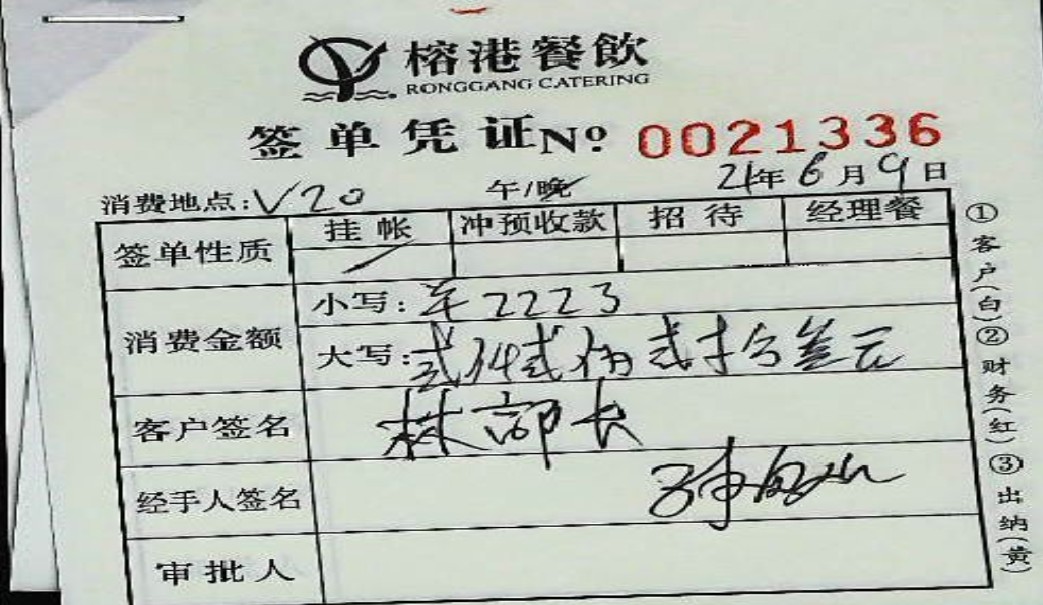 榕港餐飲
RONGGANG CATERING
签单凭证 Nº 0021336
消费地点:V20 午/晚 21年6月9日
签单性质 挂帐 冲预收款 招待 经理餐
消费金额 小写: 2223
大写:贰仟贰佰贰拾叁元
客户签名 林部长
经手人签名
审批人
①客户(白)②财务(红)③出纳(黄)